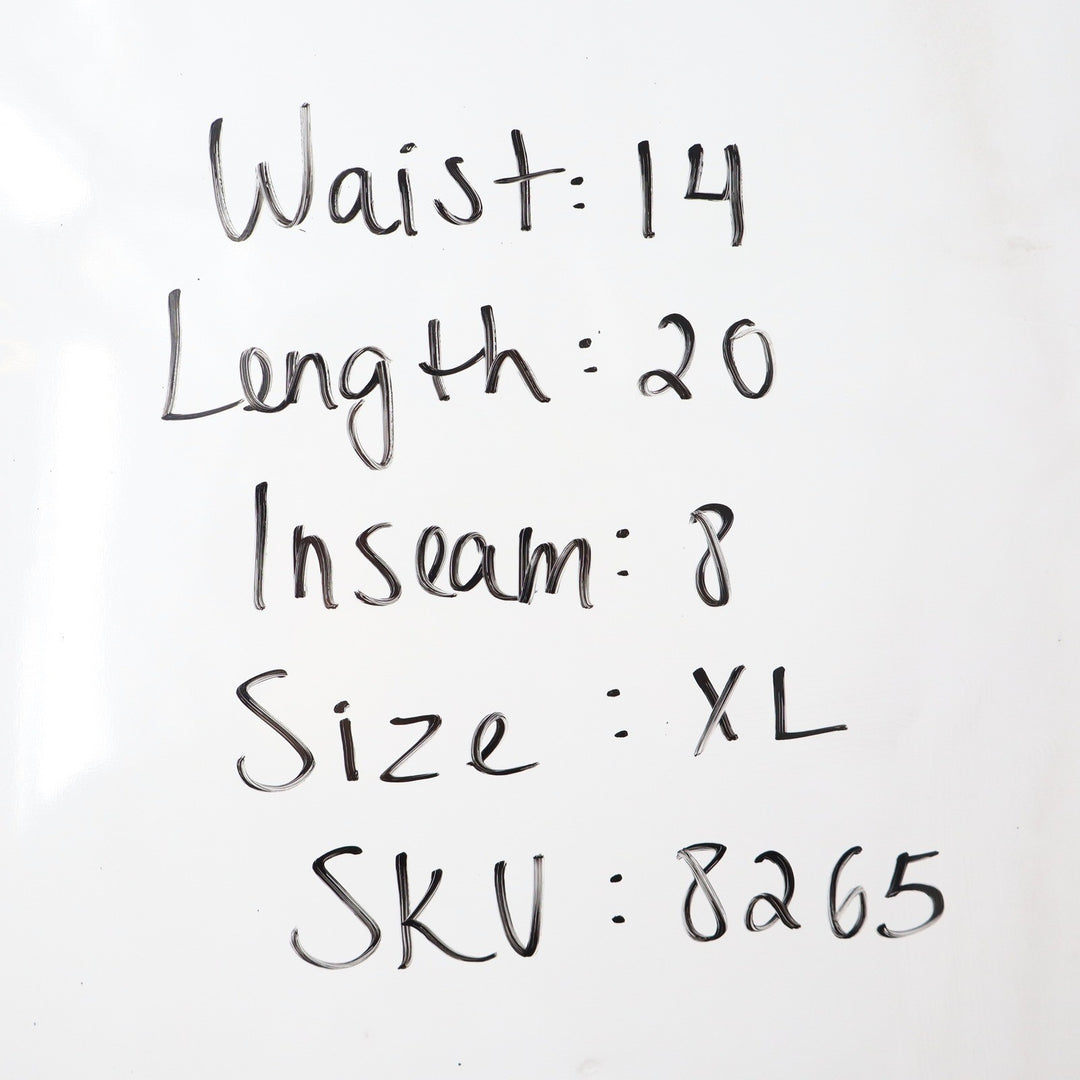 Waist: 14
Length: 20
Inseam: 8
Size: XL
SKU: 8265